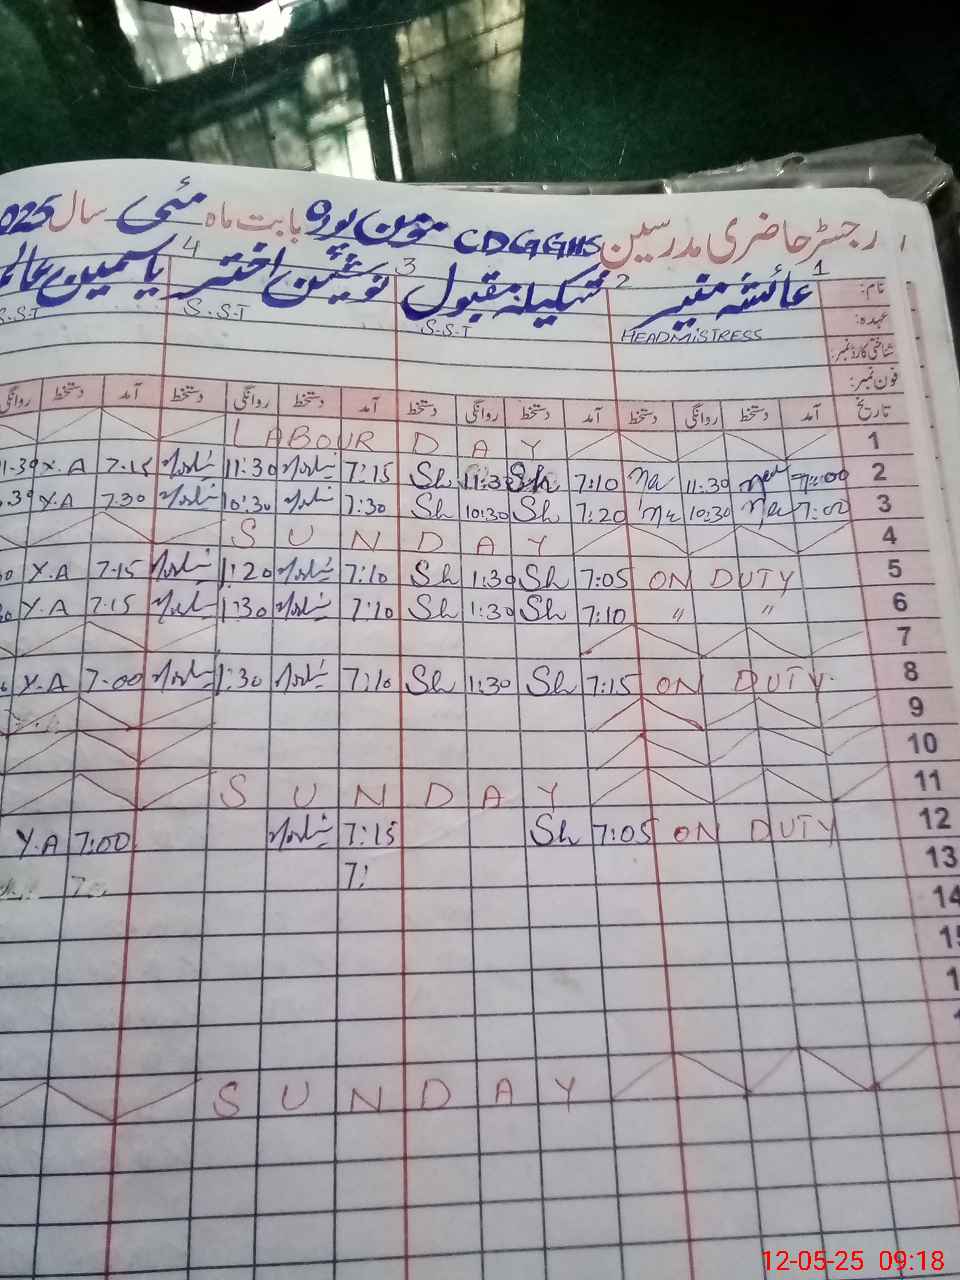 رجسٹر حاضری مدرسین CDGGHS مومن پورہ بابت ماہ مئی سال 025
نام: 1 عائشہ منیر 2 شکیلہ مقبول 3 نوشین اختر 4 یاسمین
عہدہ: HEADMISTRESS S.S.T S.S.T S.S.T
شناختی کارڈ نمبر:
فون نمبر:
تاریخ آمد دستخط روانگی دستخط آمد دستخط روانگی دستخط آمد دستخط روانگی دستخط آمد دستخط روانگی
1 LABOUR DAY
2 7:00 11:30 7:10 Sh 11:30 Sh 7:15 11:30 7.15 Y.A 1.30
3 7:00 10:30 7:20 Sh 10:30 Sh 7:30 10:30 7.30 Y.A .30
4 SUNDAY
5 ON DUTY 7:05 Sh 1:30 Sh 7:10 1:20 7.15 Y.A
6 " " 7:10 Sh 1:30 Sh 7:10 1:30 7.15 Y.A
7
8 ON DUTY 7:15 Sh 1:30 Sh 7:10 1:30 7:00 Y.A
9
10
11 SUNDAY
12 ON DUTY 7:05 Sh 7:15 7:00 Y.A
13 7:
14
SUNDAY
12-05-25 09:18